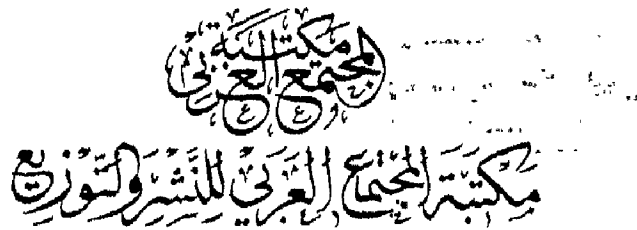 مكتبة
المجتمع العربي
مَكتبَة المجتمع العَرَبي للنَّشِر وَالتَوزيع